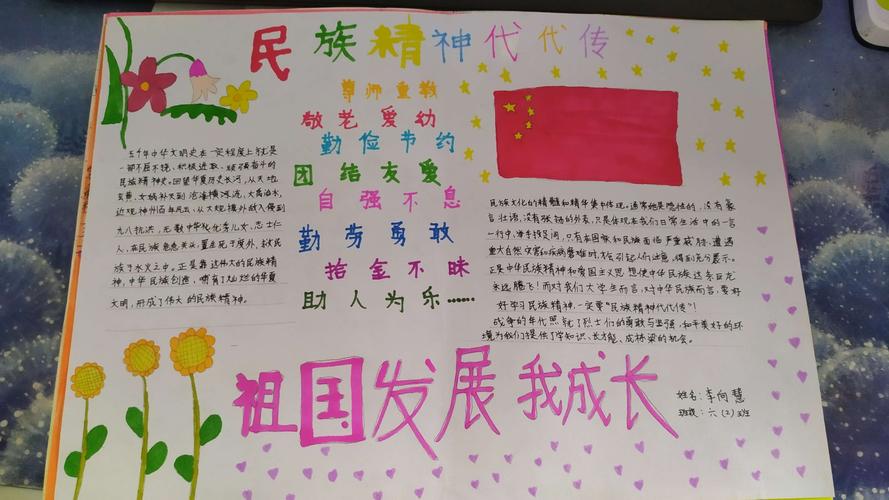 民族精神代代传
尊师重教
敬老爱幼
勤俭节约
团结友爱
自强不息
勤劳勇敢
拾金不昧
助人为乐……
五千年中华文明史在一定程度上就是
一部不屈不挠、积极进取、顽强奋斗的
民族精神史。回望华夏历史长河,从天地
玄黄、女娲补天到沧海横流、大禹治水,
近观神州百年风云,从大规模外敌入侵到
九八抗洪,无数中华优秀儿女、志士仁
人,在民族危急关头,置生死于度外,救民
族于水火之中。正是靠这伟大的民族精
神,中华民族创造,哺育了灿烂的华夏
文明,形成了伟大的民族精神。
民族文化的精髓和精华集中体现。通常她是隐性的,没有豪
言壮语,没有张扬的外表,只是体现在我们日常生活中的一言
一行中,举手投足间,只有在国家和民族面临严重威胁、遭遇
重大自然灾害和疾病磨难时,才会引起人们注意,得到充分展示。
正是中华民族精神和爱国主义思想使中华民族这条巨龙
永远腾飞!而对我们大学生而言,对中华民族而言,要好
好学习民族精神,一定要"民族精神代代传"!
战争的年代照就了烈士们的勇敢与坚强,和平美好的环
境为我们提供了学知识、长才能、成栋梁的机会。
祖国发展我成长
姓名:李向慧
班级:六(2)班